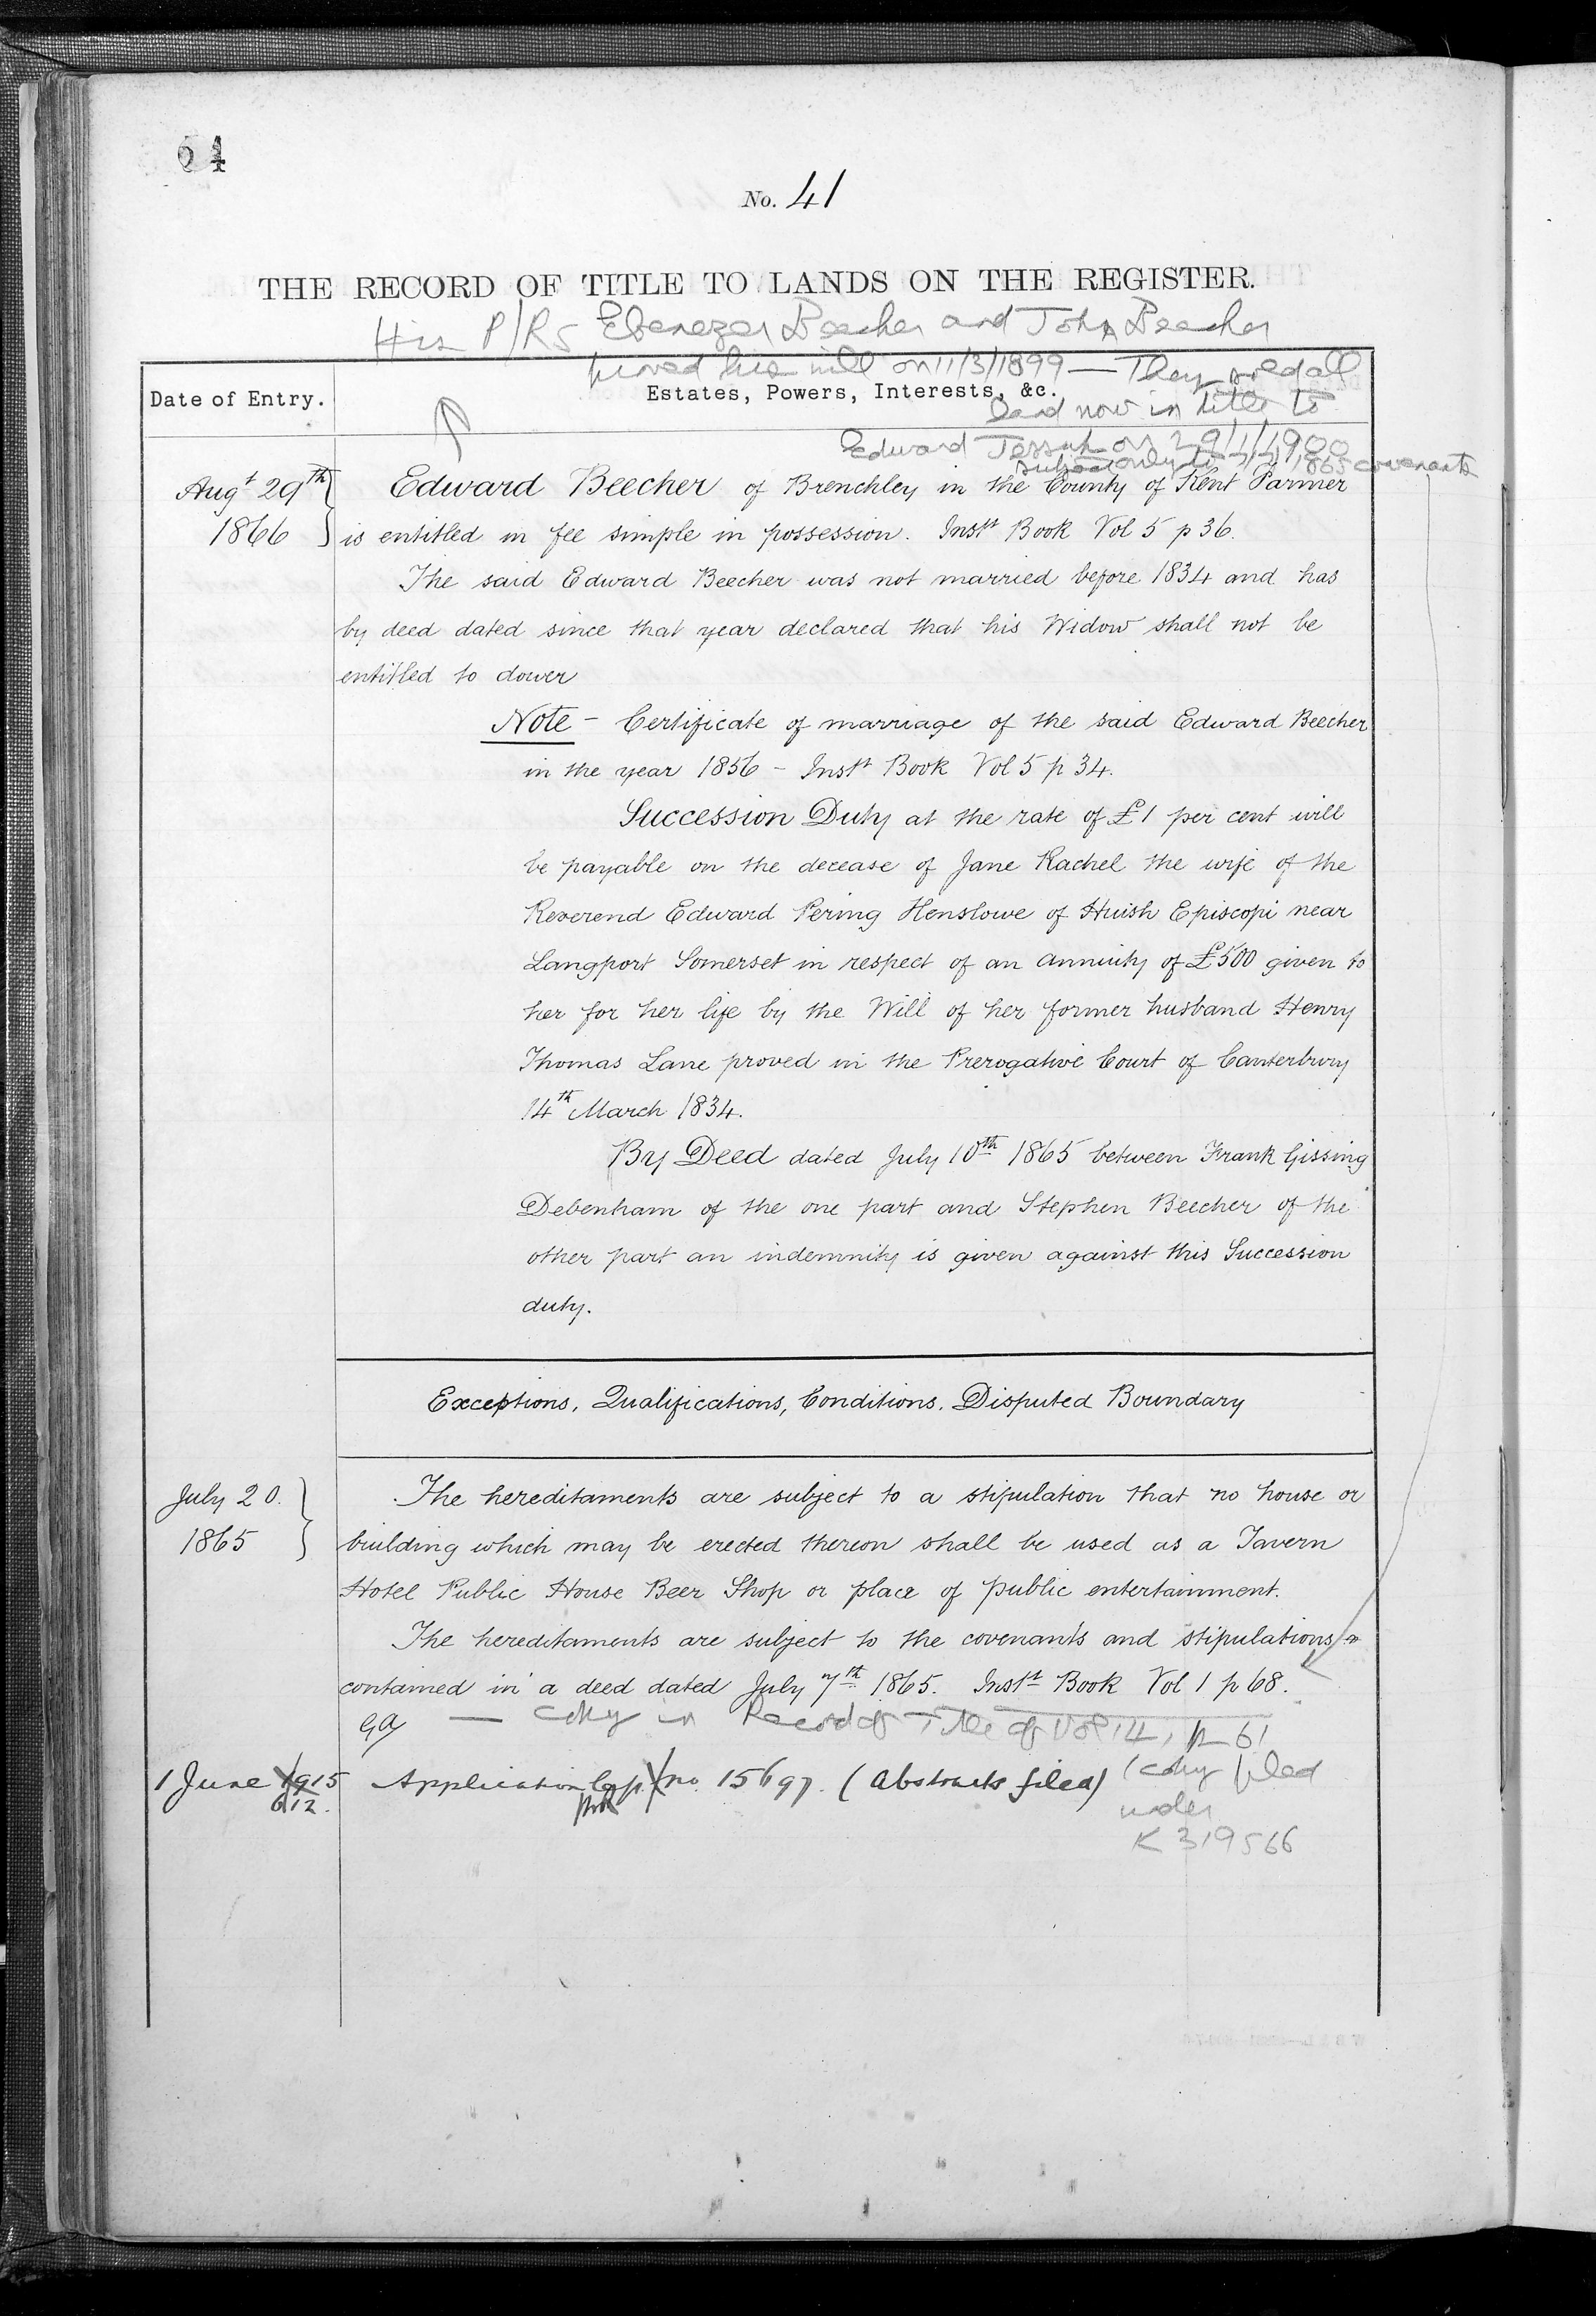 64
No. 41
THE RECORD OF TITLE TO LANDS ON THE REGISTER.
His P/Rs Ebenezer Beecher and John Beecher
proved his will on 11/3/1899 — They sold all
Date of Entry.
Estates, Powers, Interests, &c.
land now in title to
Edward Jessup on 29/1/1900
subject only to 7/7/1865 covenants
Augt 29th
1866
Edward Beecher of Brenchley in the County of Kent Farmer
is entitled in fee simple in possession. Instt Book Vol 5 p 36.
The said Edward Beecher was not married before 1834 and has
by deed dated since that year declared that his Widow shall not be
entitled to dower
Note – Certificate of marriage of the said Edward Beecher
in the year 1856 – Instt Book Vol 5 p 34.
Succession Duty at the rate of £1 per cent will
be payable on the decease of Jane Rachel the wife of the
Reverend Edward Pering Henslowe of Huish Episcopi near
Langport Somerset in respect of an annuity of £500 given to
her for her life by the Will of her former husband Henry
Thomas Lane proved in the Prerogative Court of Canterbury
14th March 1834.
By Deed dated July 10th 1865 between Frank Gissing
Debenham of the one part and Stephen Beecher of the
other part an indemnity is given against this Succession
duty.
Exceptions, Qualifications, Conditions. Disputed Boundary
July 20.
1865
The hereditaments are subject to a stipulation that no house or
building which may be erected thereon shall be used as a Tavern
Hotel Public House Beer Shop or place of public entertainment.
The hereditaments are subject to the covenants and stipulations
contained in a deed dated July 7th 1865. Instt Book Vol 1 p 68.
— Copy in Record of Title of Vol 14, p 61
1 June 1915
Application no. 15697. (Abstracts filed) (copy filed
under
K 319566